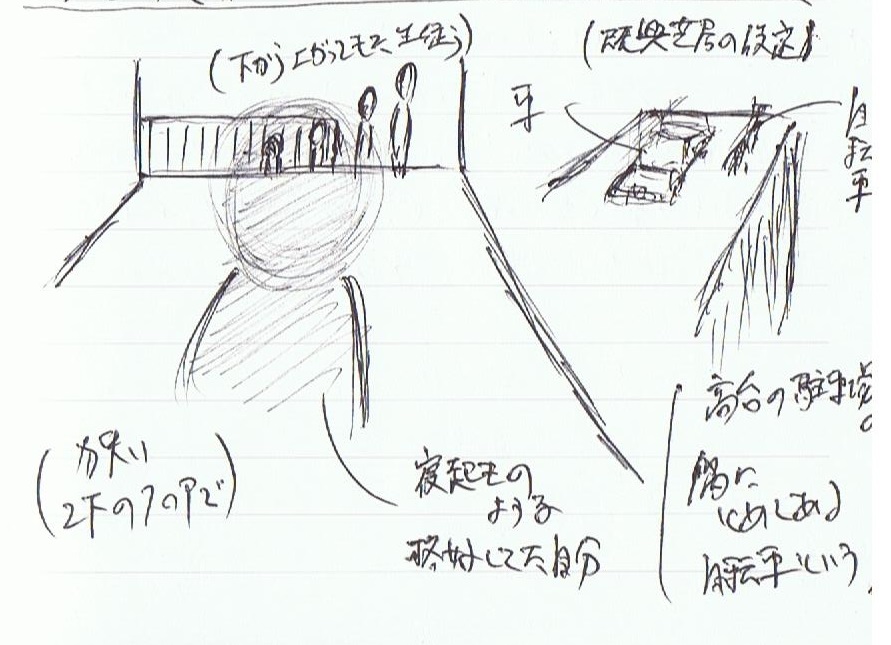 (下から上がってきた生徒ら)
(即興芝居の設定)
車
自転車
(狭い
2Fのフロアで)
寝起きの
ような
格好してた自分
高台の駐車場の
隅に
とめてある
自転車という